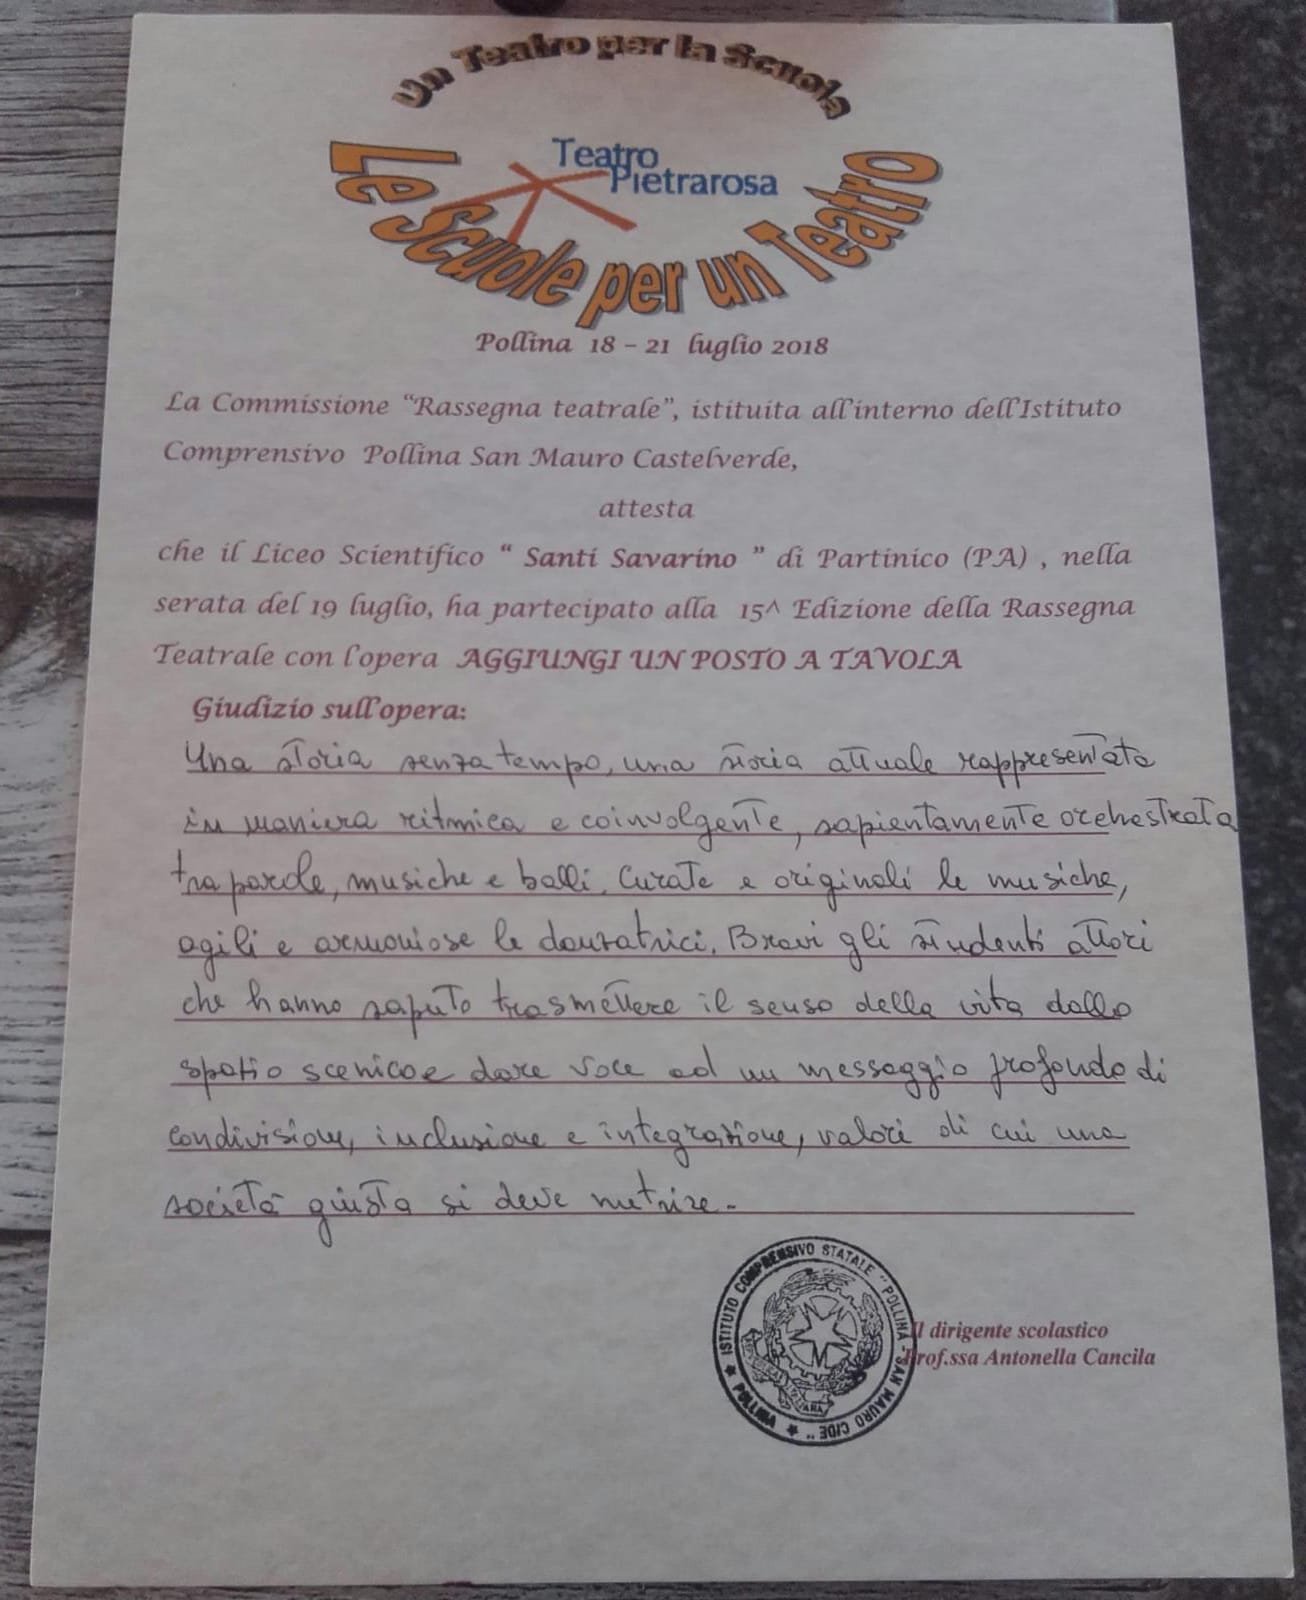 Un Teatro per la Scuola
Teatro
Pietrarosa
Le Scuole per un Teatro
Pollina 18 – 21 luglio 2018
La Commissione “Rassegna teatrale”, istituita all'interno dell'Istituto
Comprensivo Pollina San Mauro Castelverde,
attesta
che il Liceo Scientifico “ Santi Savarino ” di Partinico (PA) , nella
serata del 19 luglio, ha partecipato alla 15^ Edizione della Rassegna
Teatrale con l'opera AGGIUNGI UN POSTO A TAVOLA
Giudizio sull'opera:
Una storia senza tempo, una storia attuale rappresentata
in maniera ritmica e coinvolgente, sapientamente orchestrata
tra parole, musiche e balli. Curate e originali le musiche,
agili e armoniose le danzatrici. Bravi gli studenti attori
che hanno saputo trasmettere il senso della vita dallo
spazio scenico e dare voce ad un messaggio profondo di
condivisione, inclusione e integrazione, valori di cui una
società giusta si deve nutrire.
ISTITUTO COMPRENSIVO STATALE "POLLINA - SAN MAURO C/DE" ★ POLLINA ★
Il dirigente scolastico
Prof.ssa Antonella Cancila